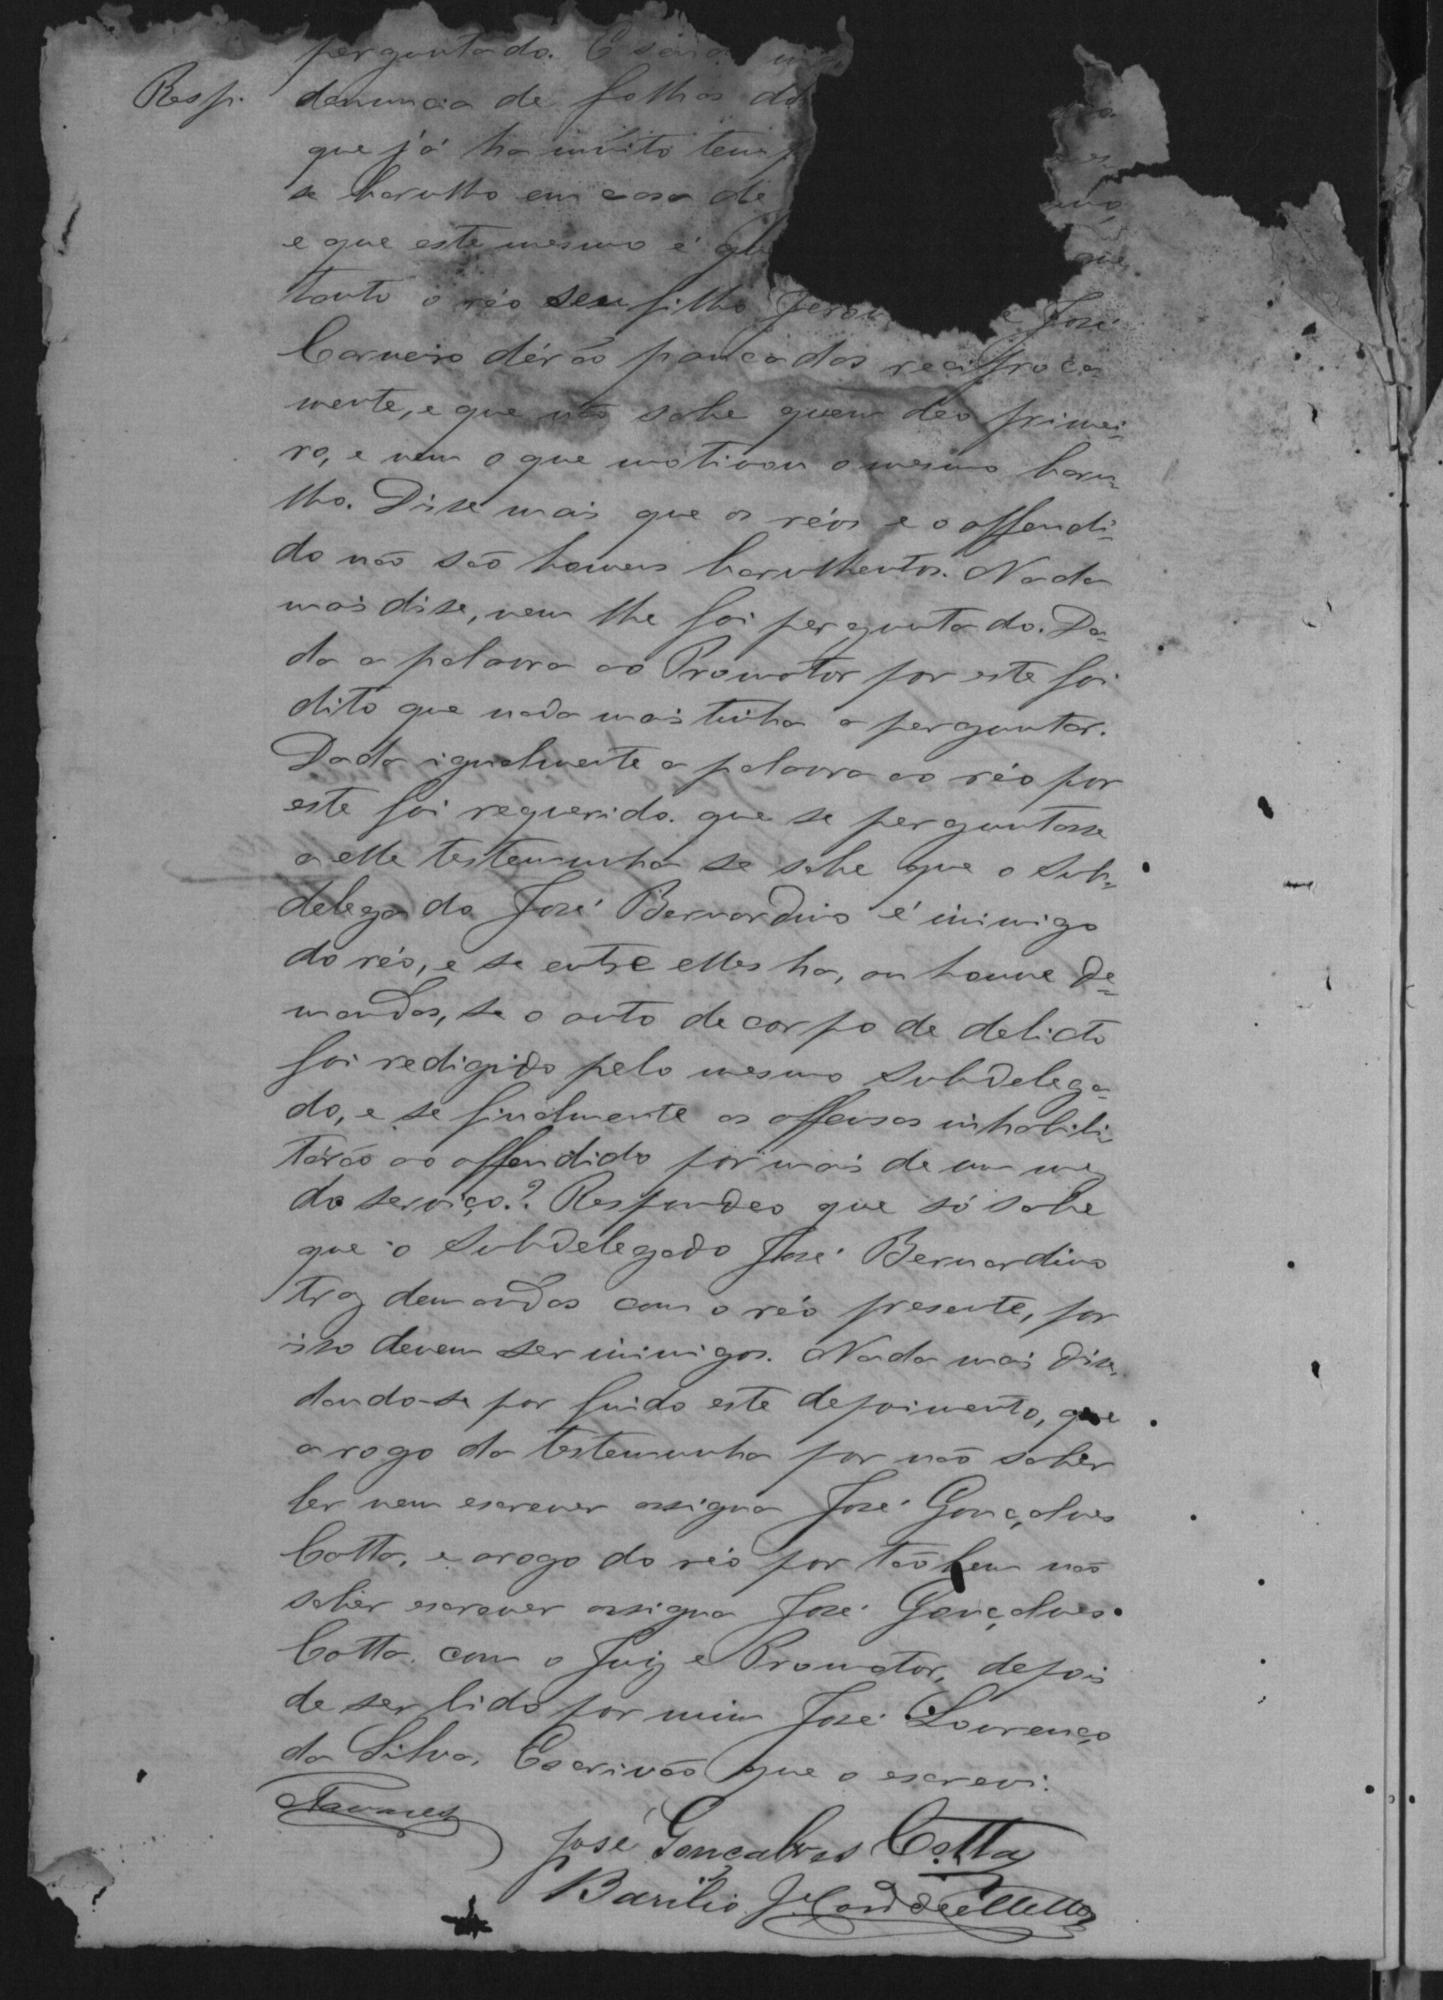 perguntado. E sendo
Resp. denuncia de folhas d
que já ha muito tem
se barulho em casa de
e que este mesmo é que
tanto o réo seu filho Jeron e José
Carneiro dérão pancadas reciproca
mente, e que não sabe quem deo primei-
ro, e nem o que motivou o mesmo baru-
lho. Disse mais que os réos e o offendi-
do não são homens barulhentos. Nada
mais disse, nem lhe foi perguntado. Da-
da a palavra ao Promotor por este foi
dito que nada mais tinha a perguntar.
Dada igualmente a palavra ao réo por
este foi requerido. que se perguntasse
a elle testemunha se sabe que o Sub-
delegado José Bernardino é inimigo
do réo, e se entre elles ha, ou houve de-
mandas, se o auto de corpo de delicto
foi redigido pelo mesmo Subdelega-
do, e se finalmente as offensas inhabili-
tárão ao offendido por mais de um mez
do serviço.? Respondeo que só sabe
que o Subdelegado José Bernardino
traz demandas com o réo presente, por
isso devem ser inimigos. Nada mais disse
dando-se por findo este depoimento, que
a rogo da testemunha por não saber
ler nem escrever assigna José Gonçalves
Cotta, e arogo do réo por tãobem não
saber escrever assigna José Gonçalves
Cotta. com o Juiz e Promotor, depois
de ser lido por mim José Lourenço
da Silva, Escrivão que o escrevi.
Tavares
José Gonçalves Cotta
Bazilio